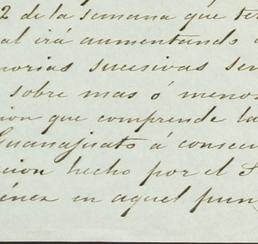 2 de la semana que ter
al irá aumentando
morias sucesivas sem
sobre mas ó menos
ion que comprende la
Guanajuato á consecu
cion hecho por el S
inez en aquel pun